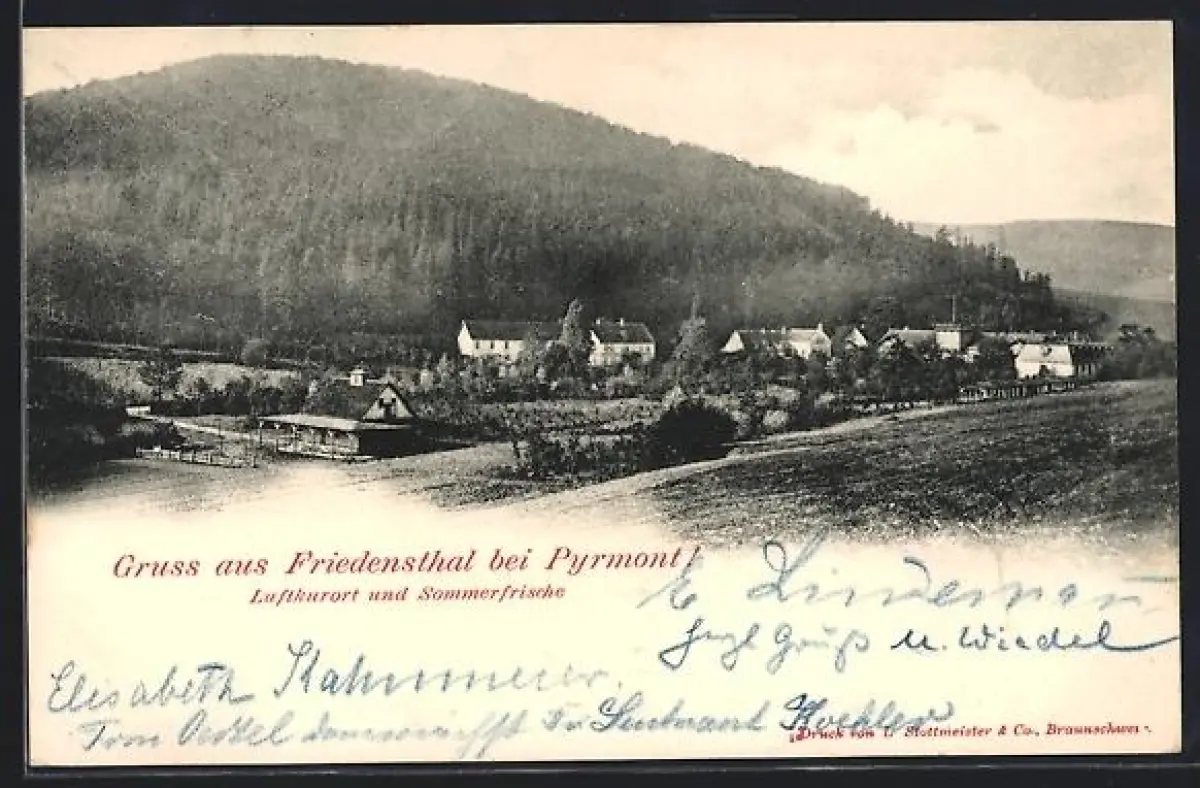 Gruss aus Friedensthal bei Pyrmont!
Luftkurort und Sommerfrische
E. Lindemann
Herzl Gruß M. Wiedel
Elisabeth Kahnmeier
Koehler
Druck von Stottmeister & Co., Braunschwei